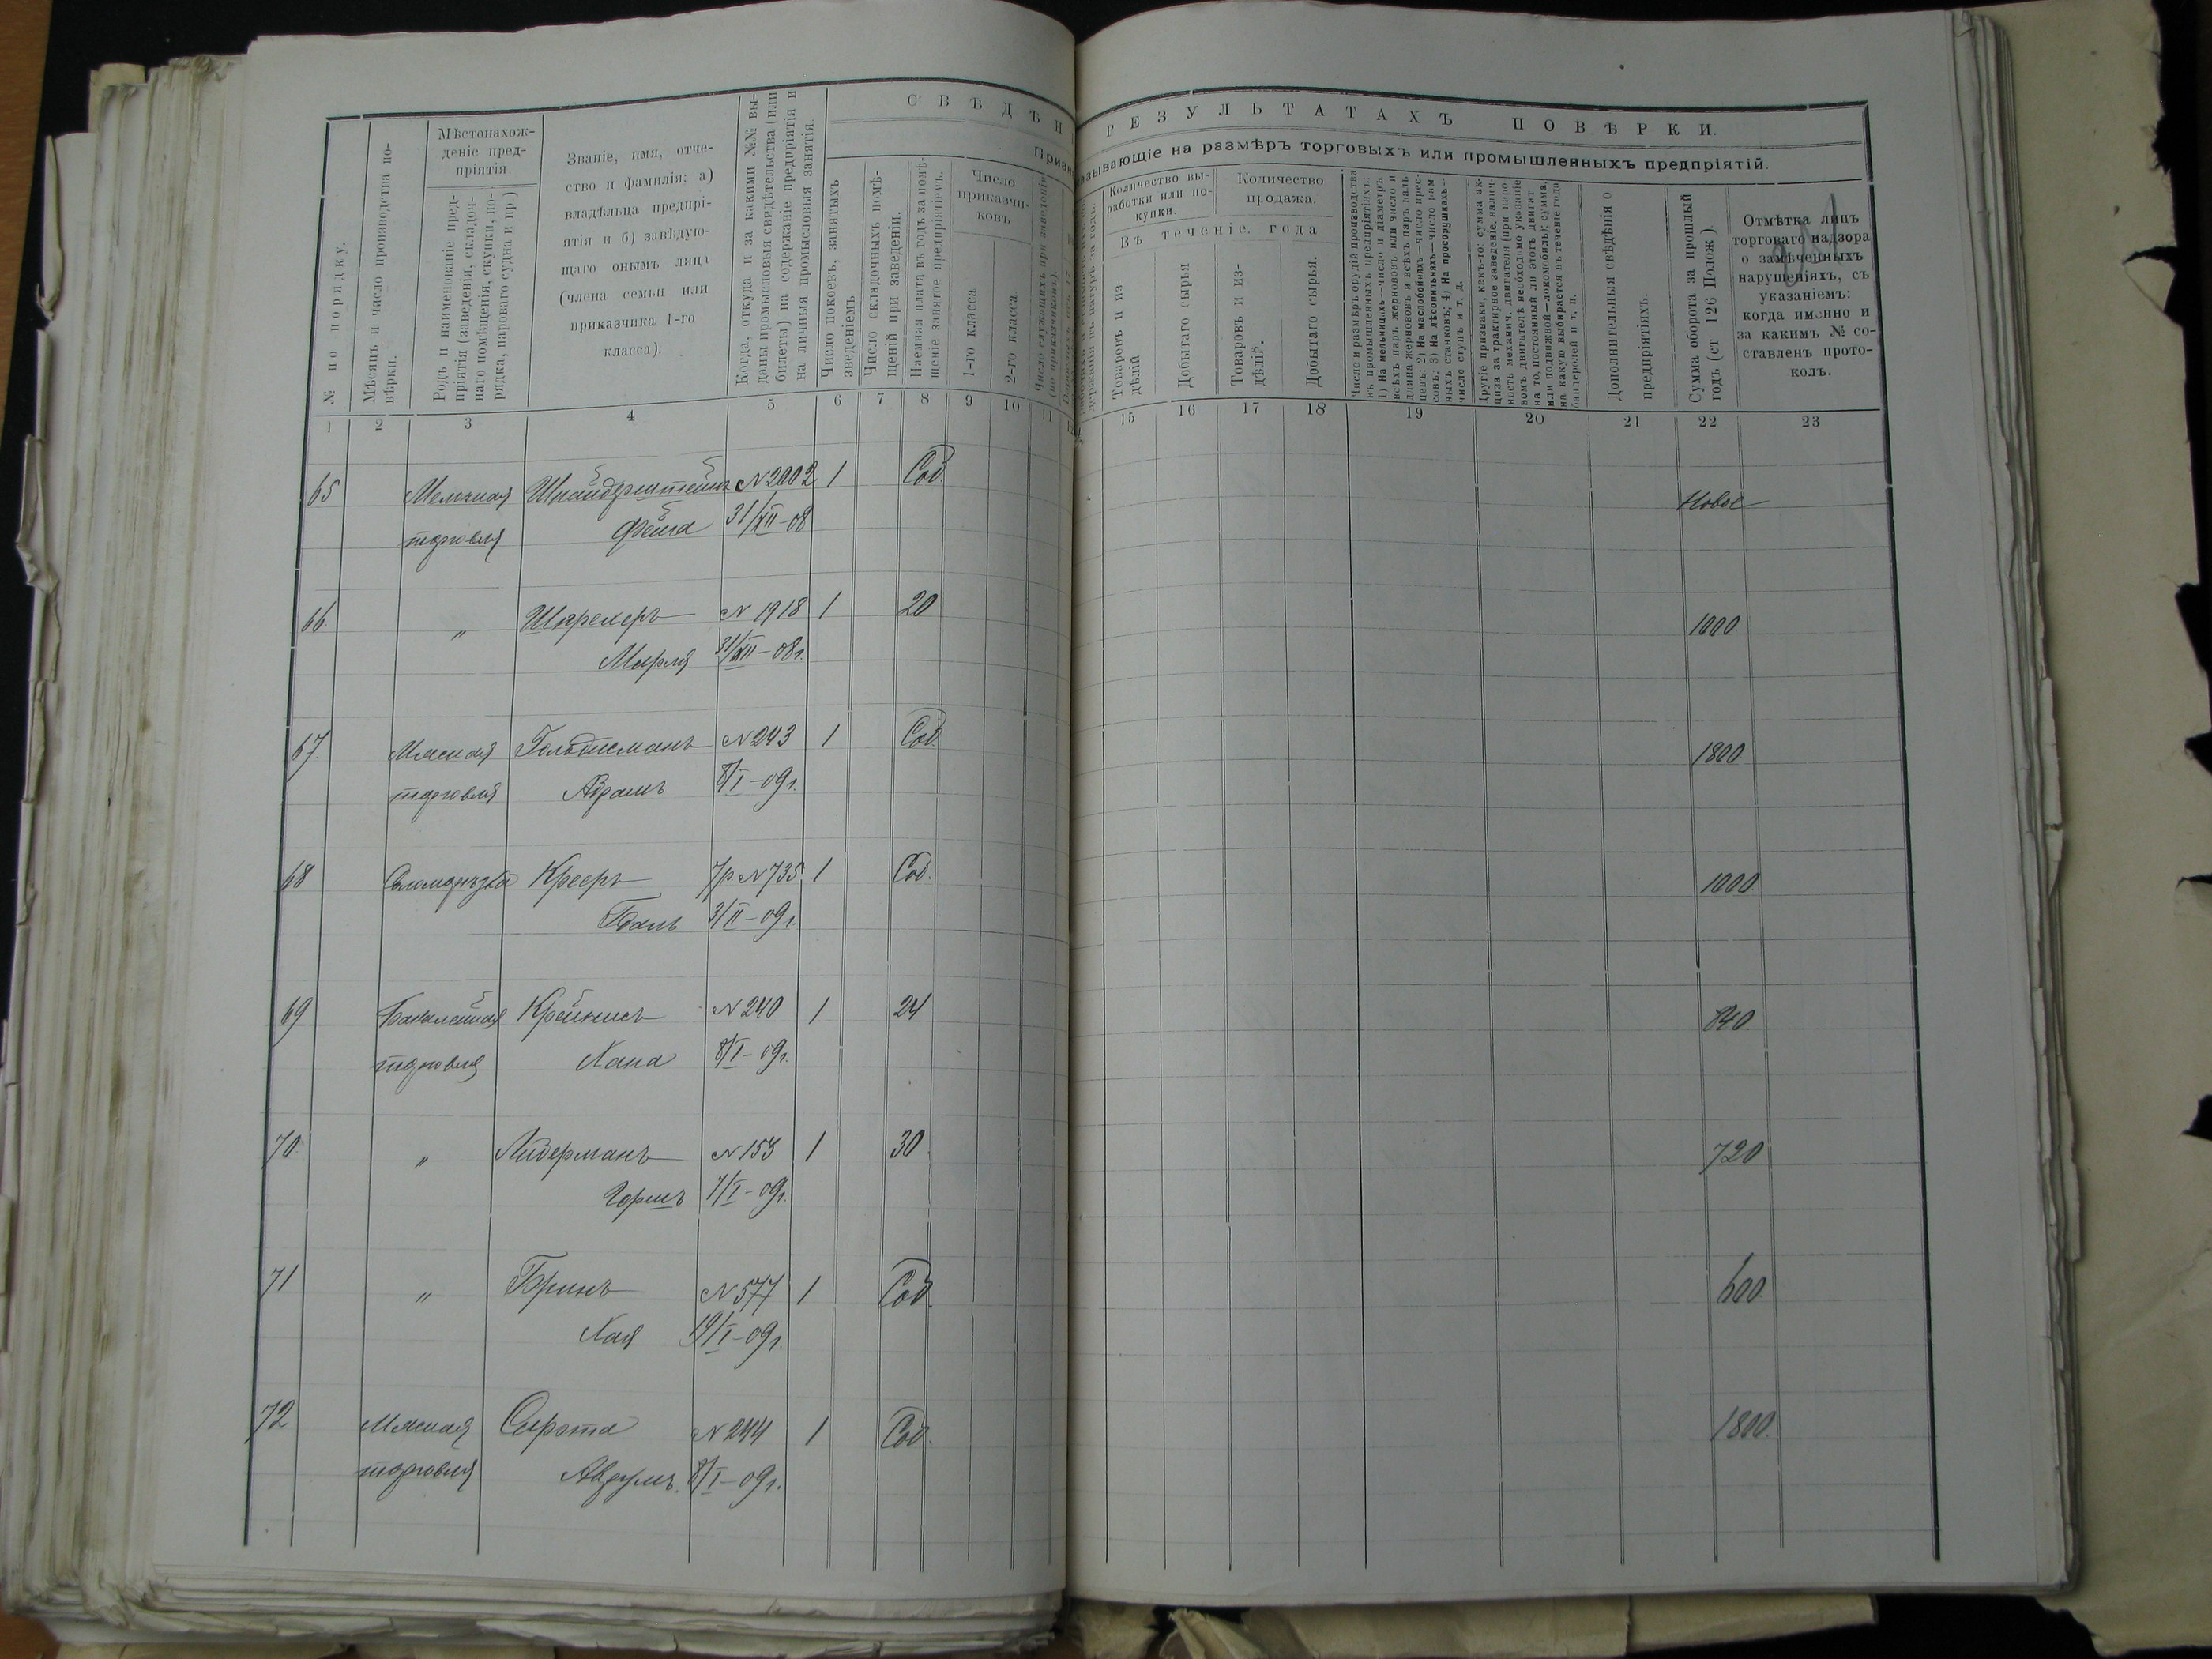 СВѢДѢН
РЕЗУЛЬТАТАХЪ ПОВѢРКИ.
Призн
азывающіе на размѣръ торговыхъ или промышленныхъ предпріятій.
№ по порядку.
Мѣсяцъ и число производства по-
вѣрки.
Мѣстонахож-
деніе пред-
пріятія
Родъ и наименованіе пред-
пріятія (заведенія, складоч-
наго помѣщенія, скупки, по-
рядка, пароваго судна и пр.)
Званіе, имя, отче-
ство и фамилія: а)
владѣльца предпрі-
ятія и б) завѣдую-
щаго онымъ лица
(члена семьи или
приказчика 1-го
класса).
Когда, откуда и за какими №№ вы-
даны промысловыя свидѣтельства (или
билеты) на содержаніе предпріятія и
на личныя промысловыя занятія.
Число покоевъ, занятыхъ
зведеніемъ
Число складочныхъ помѣ-
щеній при заведеніи.
Наемная плата въ годъ за помѣ-
щеніе занятое предпріятіемъ.
Число
приказчи-
ковъ.
1-го класса
2-го класса.
Число служащихъ при заведеніи
(не приказчиковъ).
Количество вы-
работки или по-
купки.
Количество
продажа.
Въ теченіе года
Товаровъ и из-
дѣлій
Добытаго сырья
Товаровъ и из-
дѣлій.
Добытаго сырья.
Число и размѣръ орудій производства
въ промышленныхъ предпріятіяхъ:
1) На мельницахъ—число и діаметръ
всѣхъ паръ жернововъ или число и
длина жернововъ и всѣхъ паръ валь
цевъ: 2) На маслобойняхъ—число прес-
совъ; 3) На лѣсопильняхъ—число рам-
ныхъ станковъ; 4) На просорушняхъ—
число ступъ и т. д.
Другіе признаки, какъ-то: сумма ак-
циза за трактирное заведеніе, налич-
ность механич. двигателя (при паро
вомъ двигателѣ необходимо указаніе
на то, постоянный ли этотъ двигат
или подвижной—локомобиль); сумма,
на какую выбирается въ теченіе года
бандеролей и т. п.
Дополнительныя свѣдѣнія о
предпріятіяхъ.
Сумма оборота за прошлый
годъ (ст 126 Полож)
Отмѣтка лицъ
торговаго надзора
о замѣченныхъ
нарушеніяхъ, съ
указаніемъ:
когда именно и
за какимъ № со-
ставленъ прото-
колъ.
1 2 3 4 5 6 7 8 9 10 11
15 16 17 18 19 20 21 22 23
65 Мелочная Шнайдерштейнъ N 2002 1 Соб. Новое
торговля Фейга 31/XII-08
66 " Шпрехеръ N 1918 1 20 1000
Мирля 31/XII-08г.
67 Мясная N 243 1 Соб. 1800
торговля Абрамъ 8/I-09г.
68 Крееръ 7р N 735 1 Соб. 1000
3/II-09г.
69 Бакалейная Крейнисъ N 240 1 24 840
торговля Хана 8/I-09г.
70 " Лидерманъ N 153 1 30 720
Гершъ 7/I-09г.
71 " Бринъ N 577 1 Соб. 600
Хая 19/I-09г.
72 Мясная Сирота N 244 1 Соб. 1800
торговля Аврумъ 8/I-09г.